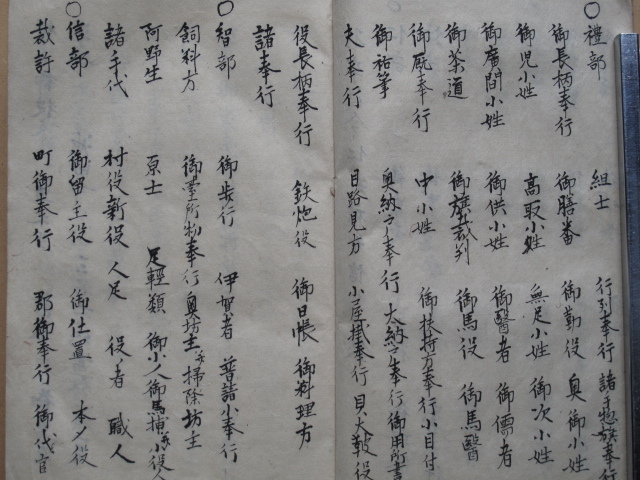 ○禮部 組士 行列奉行 諸手惣旗奉行
御長柄奉行 御膳番 御勤役 奥御小姓
御児小姓 高取小姓 無足小姓 御次小姓
御廣間小姓 御供小姓 御醫者 御儒者
御茶道 御裁判 御馬役 御馬醫
御厩奉行 中小姓 御扶持方奉行 小目付
御祐筆 奥納戸奉行 大納戸奉行 御用所書
夫奉行 目路見方 小屋掛奉行 貝大鼓役
役長柄奉行 鉄炮役 御日帳 御料理方
諸奉行
○智部 御歩行 伊賀者 普請小奉行
飼料方 御臺所物奉行 奥坊主并掃除坊主
阿野生 原士 足輕類 御小人御馬捕并小役人
諸手代 村役新役 人足 役者 職人
○信部 御留主役 御仕置 本〆役
裁許 町御奉行 郡御奉行 御代官